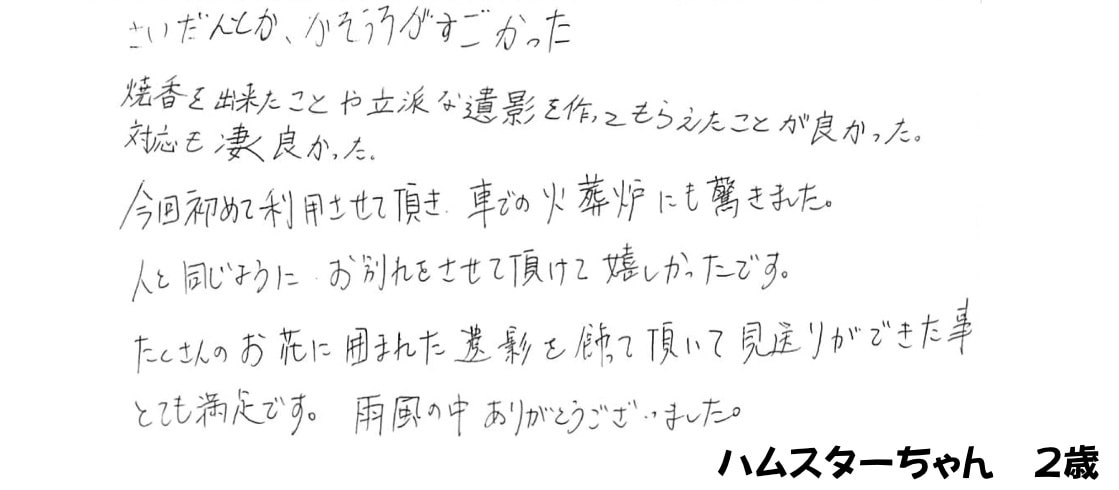 さいだんとか、かそうろがすごかった
焼香を出来たことや立派な遺影を作ってもらえたことが良かった。
対応も凄く良かった。
今回初めて利用させて頂き、車での火葬炉にも驚きました。
人と同じように、お別れをさせて頂けて嬉しかったです。
たくさんのお花に囲まれた遺影を飾って頂いて見送りができた事
とても満足です。 雨風の中ありがとうございました。
ハムスターちゃん 2歳